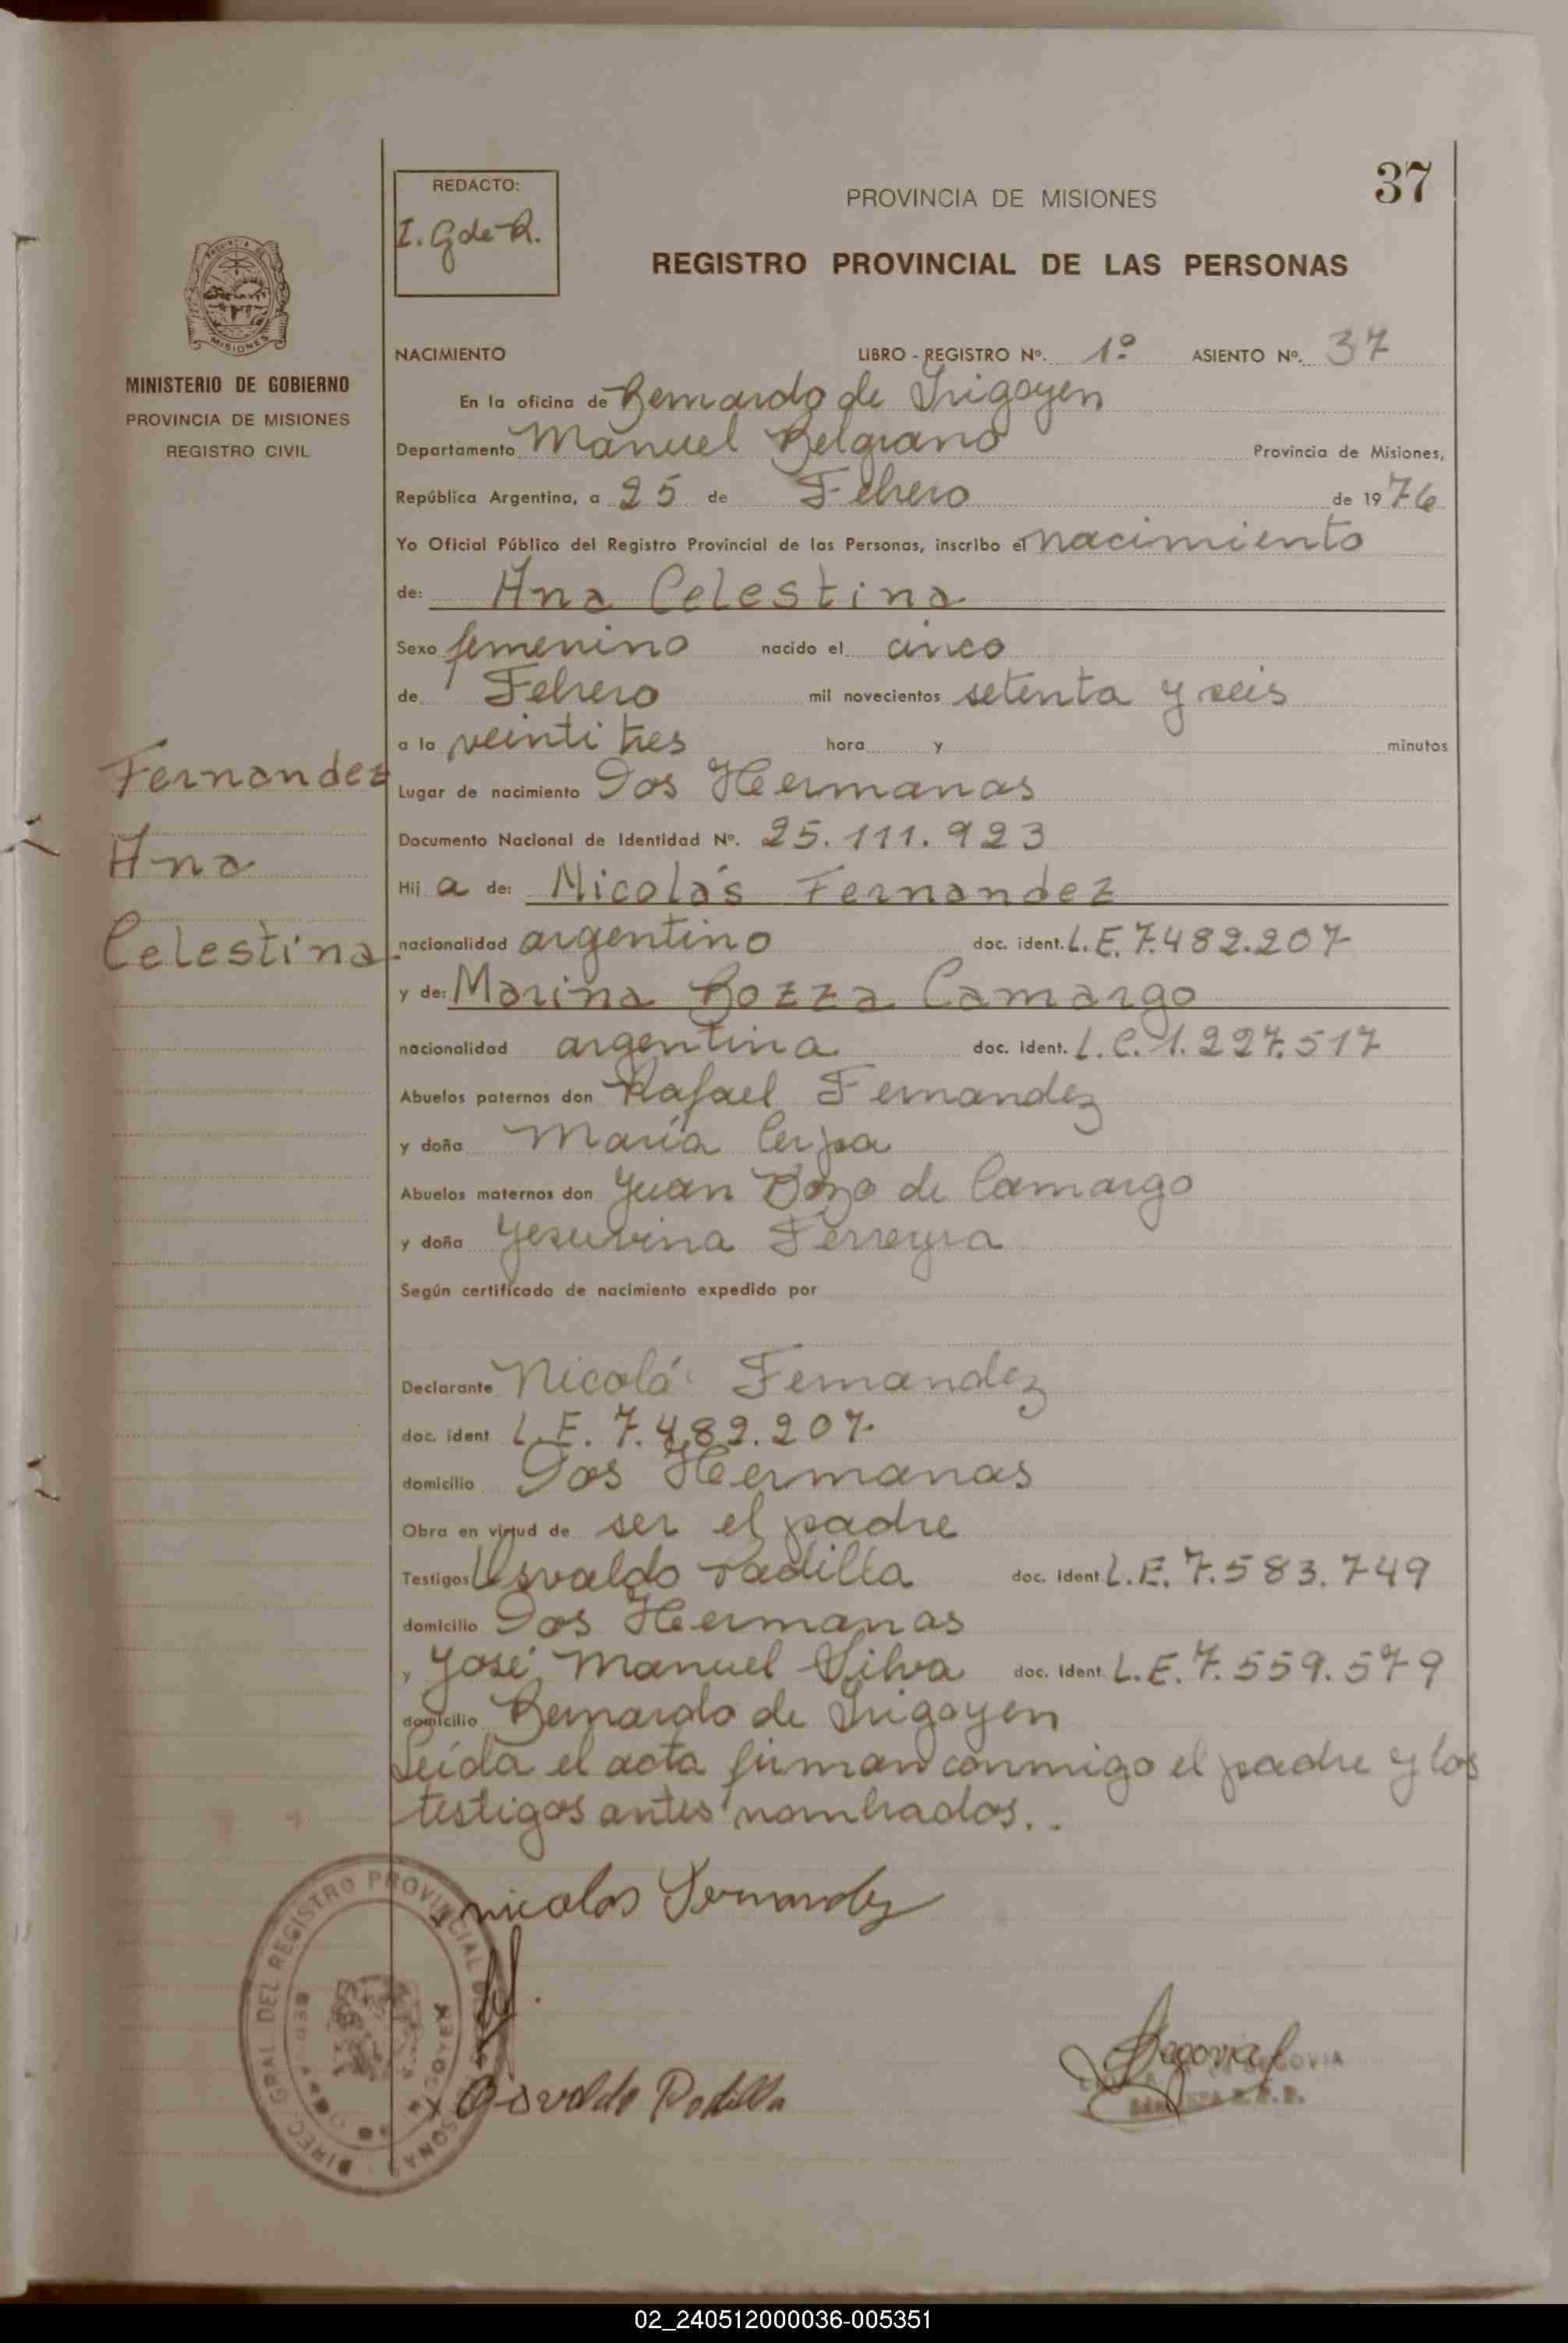 37
REDACTO:
I. G de R.
PROVINCIA DE MISIONES
REGISTRO PROVINCIAL DE LAS PERSONAS
MISIONES
MINISTERIO DE GOBIERNO
PROVINCIA DE MISIONES
REGISTRO CIVIL
NACIMIENTO LIBRO - REGISTRO Nº. 1º ASIENTO Nº. 37
En la oficina de Bernardo de Irigoyen
Departamento Manuel Belgrano Provincia de Misiones,
República Argentina, a 25 de Febrero de 1976
Yo Oficial Público del Registro Provincial de las Personas, inscribo el nacimiento
de: Ana Celestina
Sexo femenino nacido el cinco
de Febrero mil novecientos setenta y seis
a la veinti tres hora y minutos
Fernandez
Ana
Celestina
Lugar de nacimiento Dos Hermanas
Documento Nacional de Identidad Nº. 25.111.923
Hij a de: Nicolás Fernandez
nacionalidad argentino doc. ident. L.E. 7.482.207
y de: Marina Bozza Camargo
nacionalidad argentina doc. ident. L.C. 1.227.517
Abuelos paternos don Rafael Fernandez
y doña María Cerpa
Abuelos maternos don Juan Bozo de Camargo
y doña Yesuvina Ferreyra
Según certificado de nacimiento expedido por
Declarante Nicolá Fernandez
doc. ident L.E. 7.482.207
domicilio Dos Hermanas
Obra en virtud de ser el padre
Testigos Osvaldo Padilla doc. ident L.E. 7.583.749
domicilio Dos Hermanas
y José Manuel Silva doc. ident. L.E. 7.559.579
domicilio Bernardo de Irigoyen
Leída el acta firman conmigo el padre y los
testigos antes nombrados..
nicolas Fernandez
Osvaldo Padilla
Segovia
SEGOVIA
DIREC. GRAL. DEL REGISTRO PROVINCIAL DE
02_240512000036-005351